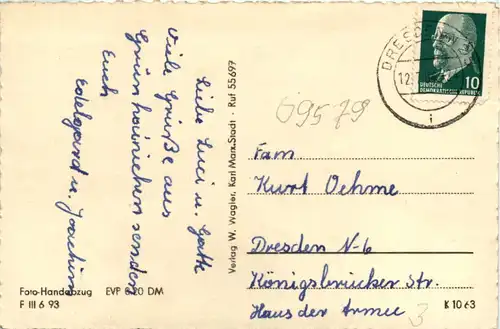 Liebe Luci u. Gatte
Viele Grüße aus
Grünhainichen senden
Euch
Edelgard u. Joachim
Foto-Handabzug EVP 0.20 DM
F III 6 93
Verlag W. Wagler, Karl Marx-Stadt · Ruf 55697
DRESDEN
12.
i
10
DEUTSCHE
DEMOKRATISCHE REPUBLIK
09579
Fam
Kurt Oehme
Dresden N-6
Königsbrücker Str.
Haus der Armee
3
K 10 63